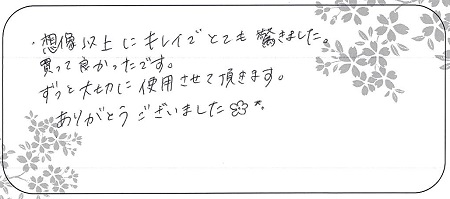 ・想像以上にキレイでとても驚きました。
買って良かったです。
ずっと大切に使用させて頂きます。
ありがとうございました